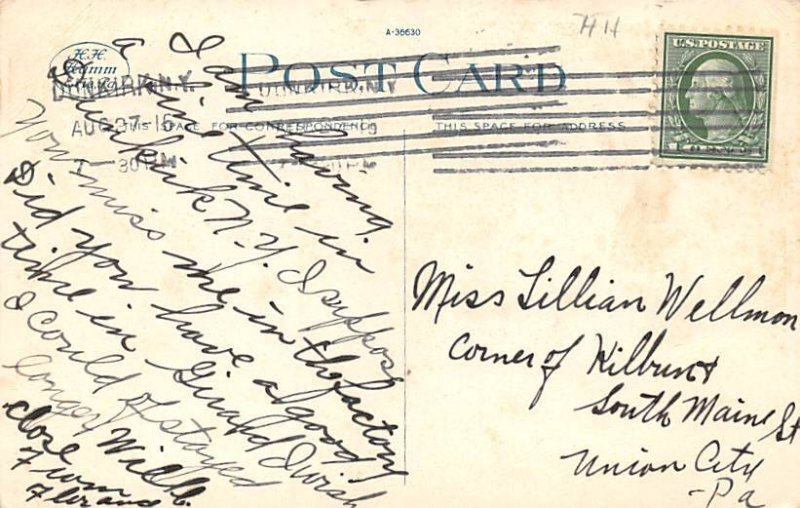 A-36630
HH
H.H.
Hamm
POST CARD
DUNKIRK, N.Y.
DUNKIRK, N.Y.
AUG 27 15
-30 PM
THIS SPACE FOR CORRESPONDENCE
THIS SPACE FOR ADDRESS
U.S. POSTAGE
I am having
a fine time in
Dunkirk N.Y. I suppose
you miss me in the factory
Did you have a good
time in Girard I wish
I could of stayed
longer Will
close
From
Miss Lillian Wellmon
Corner of Kilburn &
South Maine St
Union City
-Pa